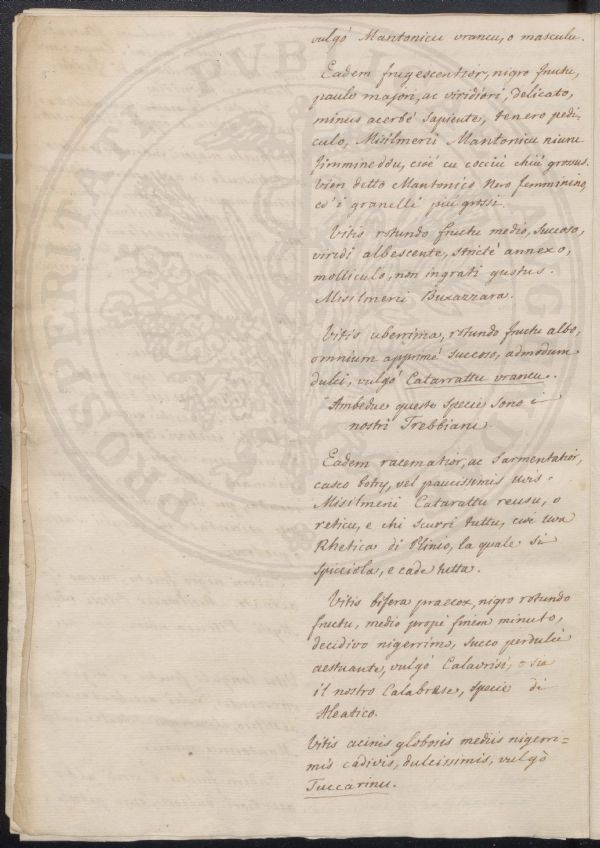 vulgò Mantonicu vrancu, o masculu.
Eadem frugescentior, nigro fructu,
paulo majori, ac viridiori, delicato,
minus acerbè sapiente, tenero pedi-
culo, Misilmerii Mantonicu niuru
fimmineddu, cioè cu coccià chiù grossu.
vien detto Mantonico Nero femminino,
ed i granelli più grossi.
Vitis rotundo fructu medio, succoso,
viridi albescente, strictè annexo,
molliculo, non ingrati gustus.
Misilmerii Buxazzara.
Vitis uberrima, rotundo fructu albo,
omnium apprimè succoso, admodum
dulci, vulgò Catarrattu vrancu.
Ambedue queste specie sono i
nostri Trebbiani
Eadem racematior, ac Sarmentatior,
casco botry, vel paucissimis uvis.
Misilmeri Catarattu reusu, o
reticu, e chi scurri tuttu, cioè uva
Rhetica di Plinio, la quale si
spicciola, e cade tutta.
Vitis bifera praecox, nigro rotundo
fructu, medio propè finem minuto,
decidivo nigerrimo, succo perdulcè
aestuante, vulgò Calavrisi, o sia
il nostro Calabrese, specie di
Aleatico.
Vitis acinis globosis mediis nigerri=
mis cadivis, dulcissimis, vulgò
Tuccarinu.
PROSPERITATI PUBLICAE